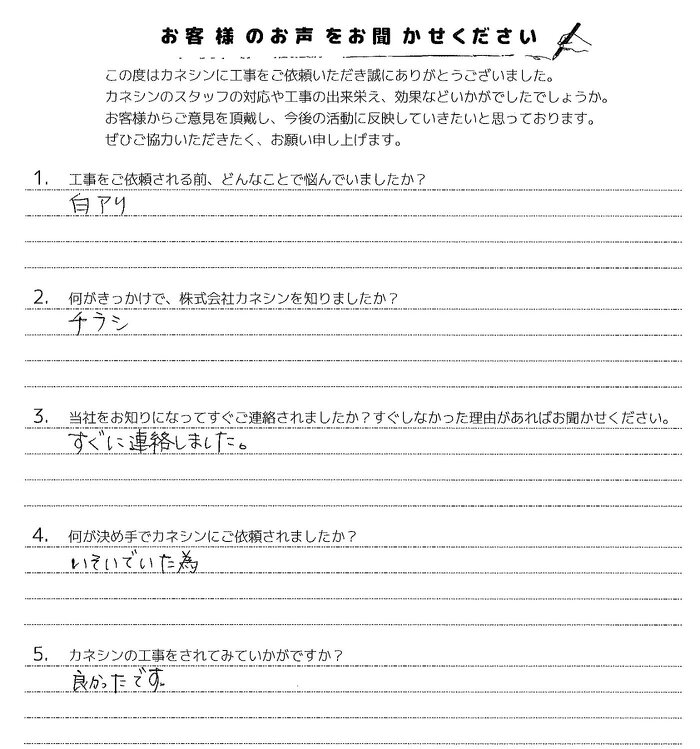 お客様のお声をお聞かせください
この度はカネシンに工事をご依頼いただき誠にありがとうございました。
カネシンのスタッフの対応や工事の出来栄え、効果などいかがでしたでしょうか。
お客様からご意見を頂戴し、今後の活動に反映していきたいと思っております。
ぜひご協力いただきたく、お願い申し上げます。
1. 工事をご依頼される前、どんなことで悩んでいましたか？
白アリ
2. 何がきっかけで、株式会社カネシンを知りましたか？
チラシ
3. 当社をお知りになってすぐご連絡されましたか？すぐしなかった理由があればお聞かせください。
すぐに連絡しました。
4. 何が決め手でカネシンにご依頼されましたか？
いそいでいた為
5. カネシンの工事をされてみていかがですか？
良かったです。